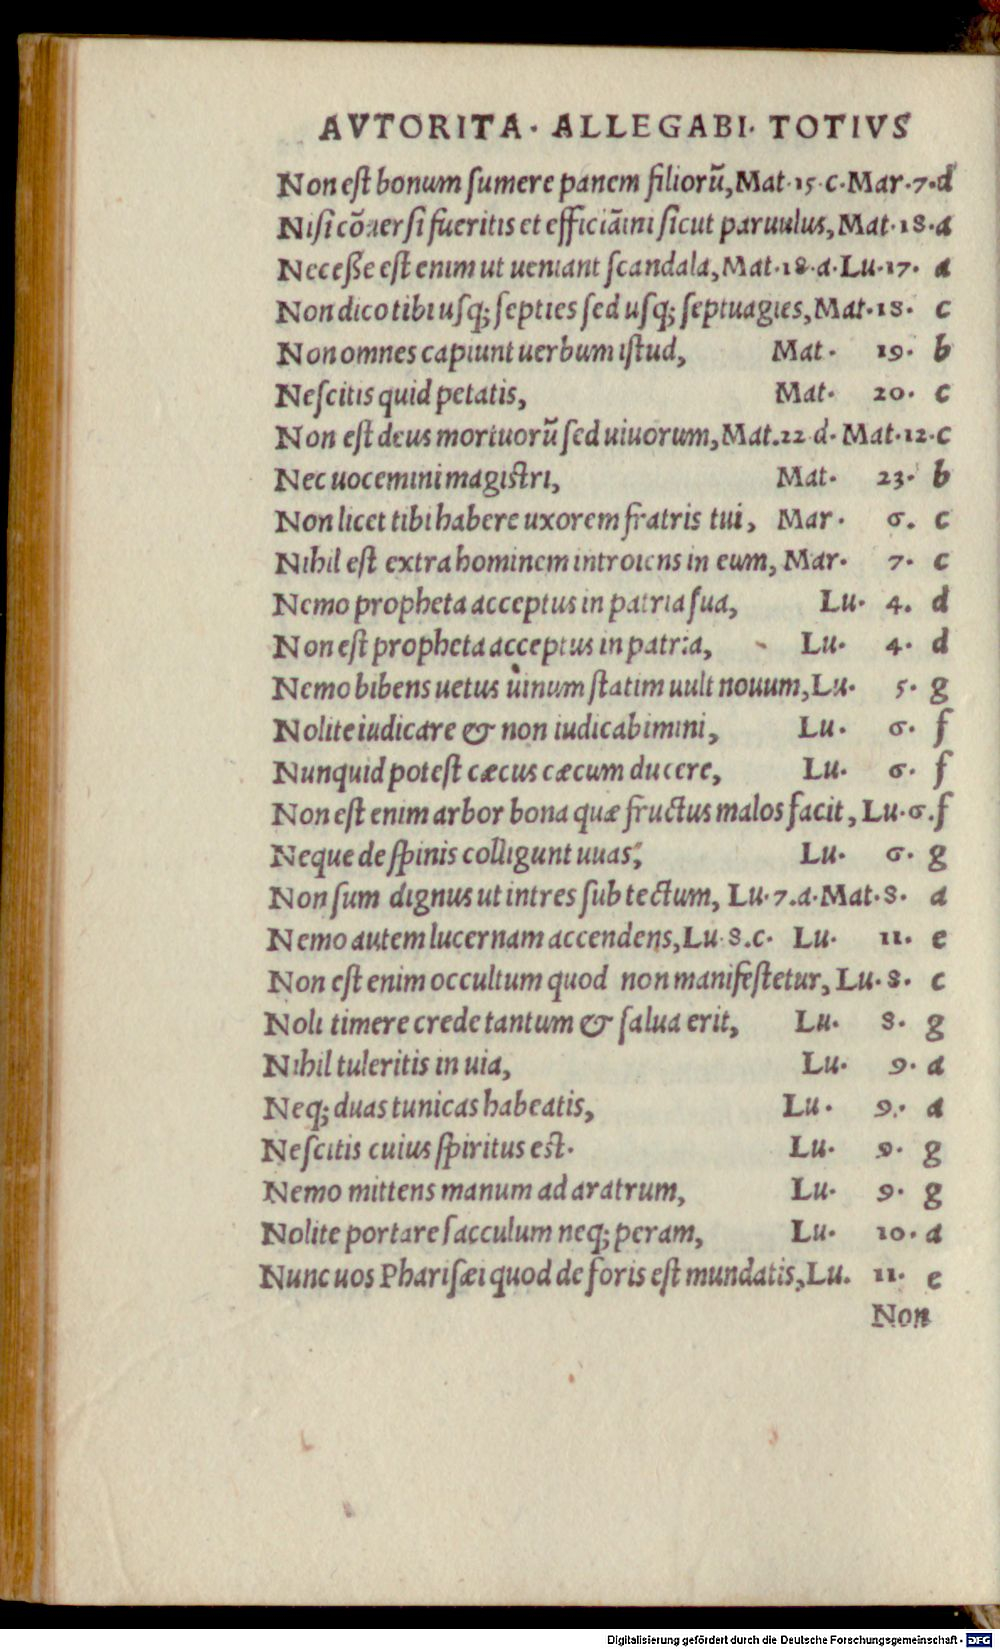 AVTORITA· ALLEGABI· TOTIVS
Non eſt bonum ſumere panem filiorũ, Mat·15·c·Mar·7·d
Niſi cõuerſi fueritis et efficiãini ſicut paruulus, Mat·18·a
Neceſſe eſt enim ut ueniant ſcandala, Mat·18·a·Lu·17· a
Non dico tibi uſq; ſepties ſed uſq; ſeptuagies, Mat·18· c
Non omnes capiunt uerbum iſtud, Mat· 19· b
Neſcitis quid petatis, Mat· 20· c
Non eſt deus mortuorũ ſed uiuorum, Mat.22 d· Mat·12·c
Nec uocemini magiſtri, Mat· 23· b
Non licet tibi habere uxorem fratris tui, Mar· 6. c
Nihil eſt extra hominem introiens in eum, Mar· 7· c
Nemo propheta acceptus in patria ſua, Lu· 4. d
Non eſt propheta acceptus in patria, Lu· 4· d
Nemo bibens uetus uinum ſtatim uult nouum, Lu· 5· g
Nolite iudicare & non iudicabimini, Lu· 6· f
Nunquid poteſt cæcus cæcum ducere, Lu· 6· f
Non eſt enim arbor bona quæ fructus malos facit, Lu·6.f
Neque de ſpinis colligunt uuas, Lu· 6· g
Non ſum dignus ut intres ſub tectum, Lu·7.a·Mat·8· a
Nemo autem lucernam accendens, Lu·8.c· Lu· 11· e
Non eſt enim occultum quod non manifeſtetur, Lu·8· c
Noli timere crede tantum & ſalua erit, Lu· 8· g
Nihil tuleritis in uia, Lu· 9· a
Neq; duas tunicas habeatis, Lu· 9· a
Neſcitis cuius ſpiritus eſt· Lu· 9· g
Nemo mittens manum ad aratrum, Lu· 9· g
Nolite portare ſacculum neq; peram, Lu· 10· a
Nunc uos Phariſæi quod de foris eſt mundatis, Lu. 11· e
Non
Digitalisierung gefördert durch die Deutsche Forschungsgemeinschaft - DFG